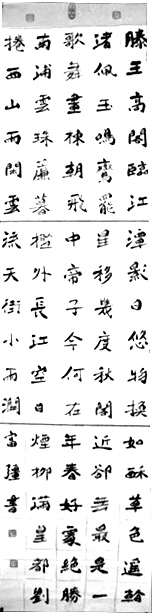 滕王高閣臨江
渚佩玉鳴鸞罷
歌舞畫棟朝飛
南浦雲珠簾暮
捲西山雨閑雲
潭影日悠物換
星移幾度秋閣
中帝子今何在
檻外長江空自
流天街小雨潤
如酥草色遙看
近卻無最是一
年春好處絕勝
煙柳滿皇都劉
富書